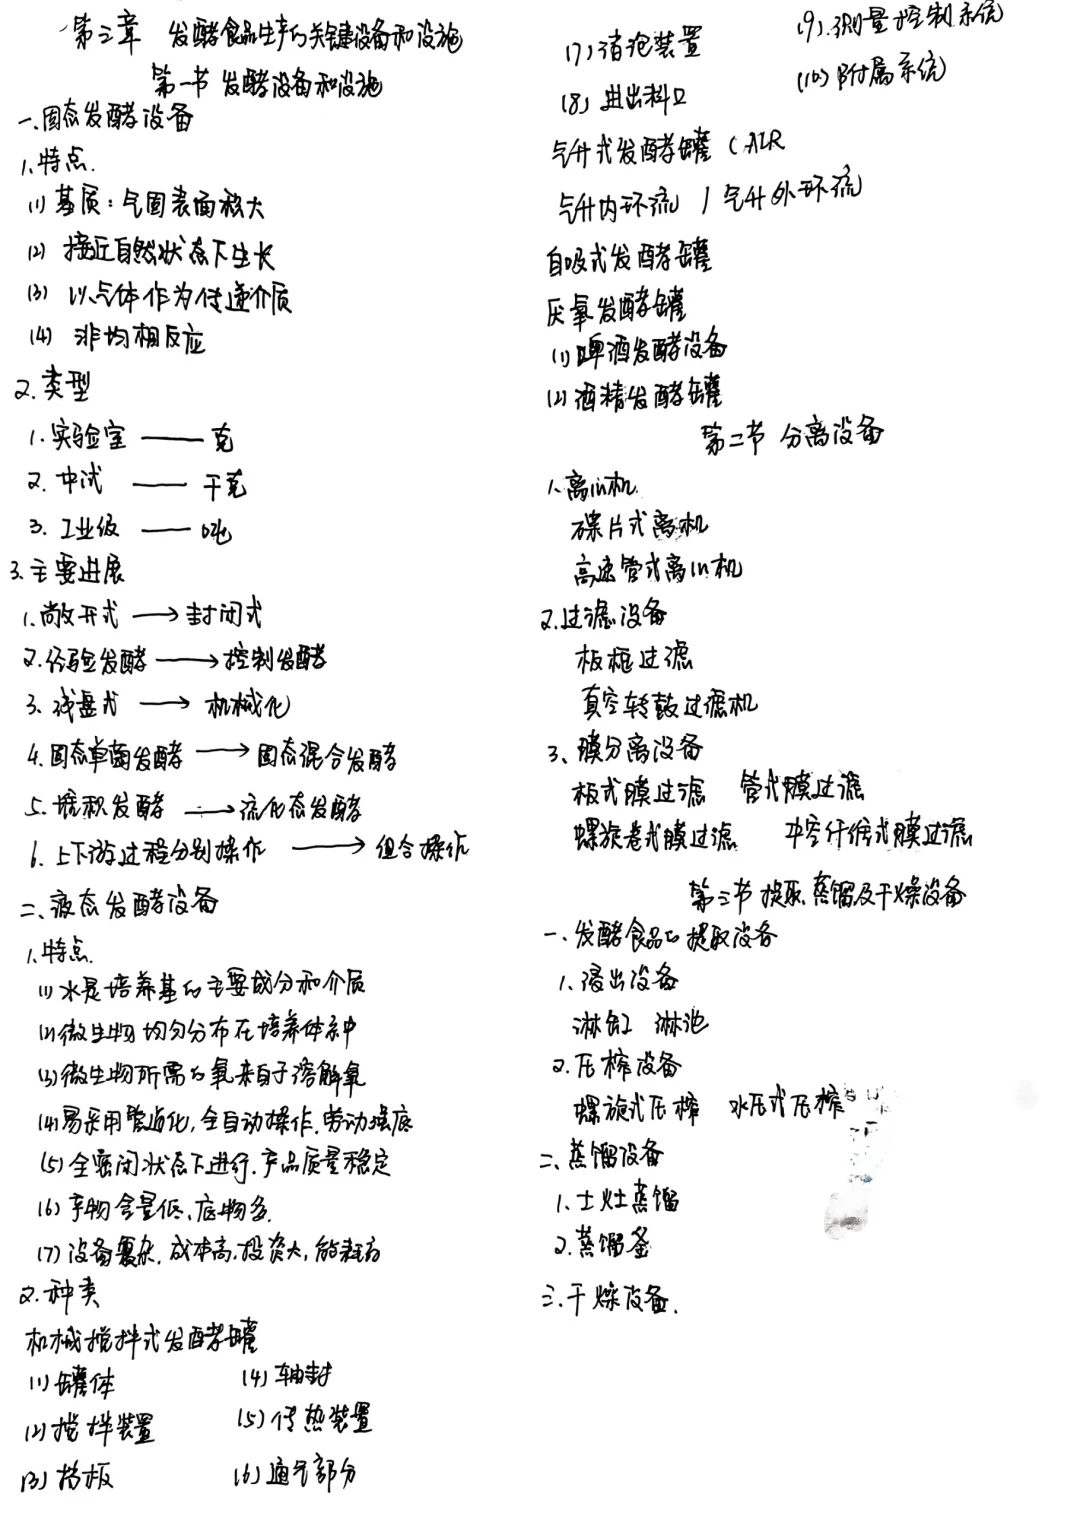 第三章 发酵食品生产的关键设备和设施
第一节 发酵设备和设施
一、固态发酵设备
1、特点.
(1) 基质：气固表面积大
(2) 接近自然状态下生长
(3) 以气体作为传递介质
(4) 非均相反应
2.类型
1.实验室 —— 克
2.中试 —— 千克
3.工业级 —— 吨
3.主要进展
1.敞开式 → 封闭式
2.经验发酵 → 控制发酵
3、浅盘式 → 机械化
4.固态单菌发酵 → 固态混合发酵
5.堆积发酵 → 流化态发酵
6.上下游过程分别操作 → 组合操作
二、液态发酵设备
1.特点.
(1)水是培养基的主要成分和介质
(2)微生物均匀分布在培养体系中
(3)微生物所需的氧来自于溶解氧
(4)易采用管道化,全自动操作.劳动强底
(5)全密闭状态下进行.产品质量稳定
(6)产物含量低、底物多.
(7)设备复杂.成本高.投资大,能耗高
2.种类
机械搅拌式发酵罐
(1)罐体 (4)轴封
(2)搅拌装置 (5)传热装置
(3)挡板 (6)通气部分
(7)消泡装置 (9).测量控制系统
(8)进出料口 (10)附属系统
气升式发酵罐 (ALR
气升内环流 / 气升外环流
自吸式发酵罐
厌氧发酵罐
(1)啤酒发酵设备
(2)酒精发酵罐
第二节 分离设备
1.离心机
碟片式离机
高速管式离心机
2.过滤设备
板框过滤
真空转鼓过滤机
3、膜分离设备
板式膜过滤 管式膜过滤
螺旋卷式膜过滤 中空纤维式膜过滤
第三节 提取.蒸馏及干燥设备
一、发酵食品的提取设备
1.浸出设备
淋缸 淋池
2.压榨设备
螺旋式压榨 水压式压榨
二、蒸馏设备
1.土灶蒸馏
2.蒸馏釜
三.干燥设备.